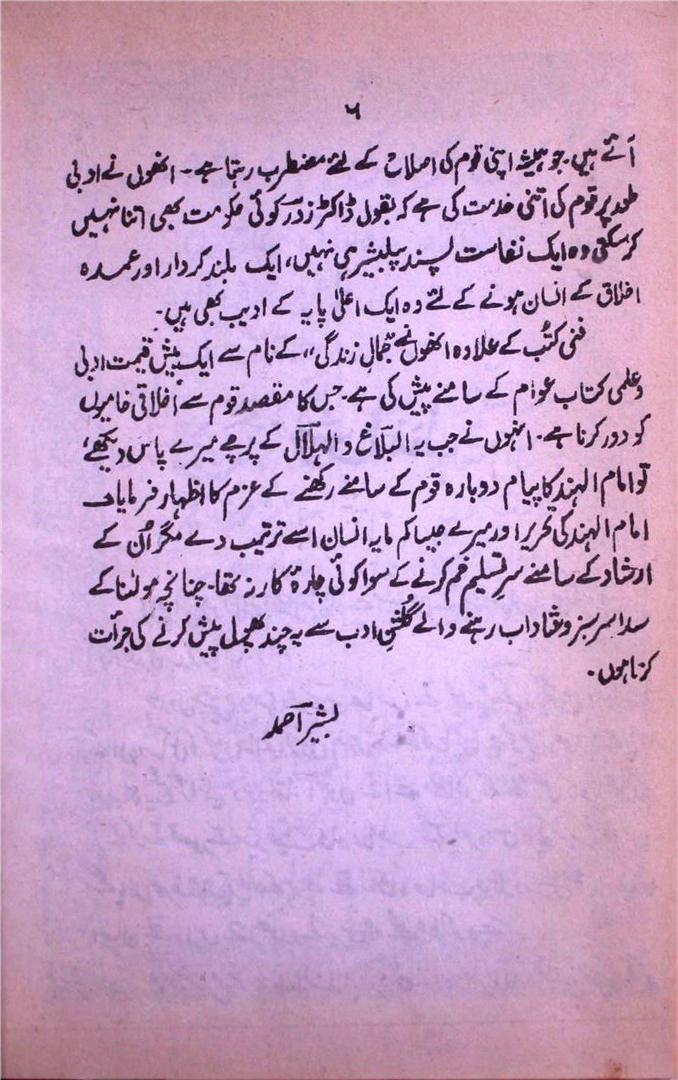 ۶
آتے ہیں۔ جو ہمیشہ اپنی قوم کی اصلاح کے لئے مضطرب رہتا ہے۔ انھوں نے ادبی
طور پر قوم کی اتنی خدمت کی ہے کہ بقول ڈاکٹر زور کوئی حکومت بھی اتنا نہیں
کر سکتی وہ ایک نفاست پسند پبلیشر ہی نہیں، ایک بلند کردار اور عمدہ
اخلاق کے انسان ہونے کے لئے وہ ایک اعلیٰ پایہ کے ادیب بھی ہیں۔
فنی کتب کے علاوہ انھوں نے "جمالِ زندگی" کے نام سے ایک بیش قیمت ادبی
و علمی کتاب عوام کے سامنے پیش کی ہے۔ جس کا مقصد قوم سے اخلاقی خامیوں
کو دور کرنا ہے۔ انہوں نے جب یہ البلاغ و الہلال کے پرچے میرے پاس دیکھے،
تو امام الہند کا پیام دوبارہ قوم کے سامنے رکھنے کے عزم کا اظہار فرمایا۔
امام الہند کی تحریر اور میرے جیسا کم مایہ انسان اسے ترتیب دے مگر اُن کے
ارشاد کے سامنے سرِ تسلیم خم کرنے کے سوا کوئی چارۂ کار نہ تھا۔ چنانچہ مولٰنا کے
سدا سر سبز و شاداب رہنے والے گلشنِ ادب سے یہ چند پھول پیش کرنے کی جرأت
کرتا ہوں۔
بشیر احمد